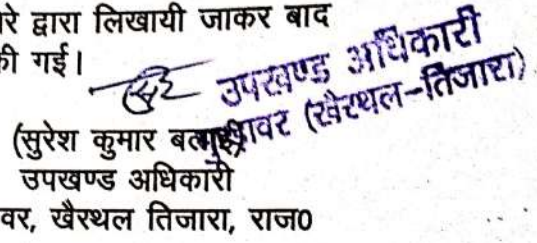 रे द्वारा लिखायी जाकर बाद
की गई।
उपखण्ड अधिकारी
वर (खैरथल-तिजारा)
(सुरेश कुमार
उपखण्ड अधिकारी
वर, खैरथल तिजारा, राज0